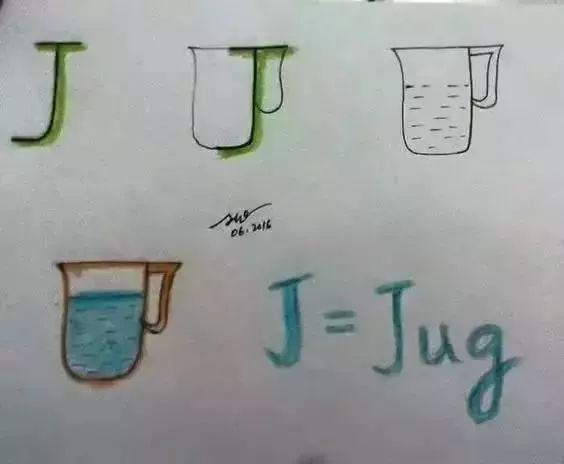 J
J
06.2016
J = Jug